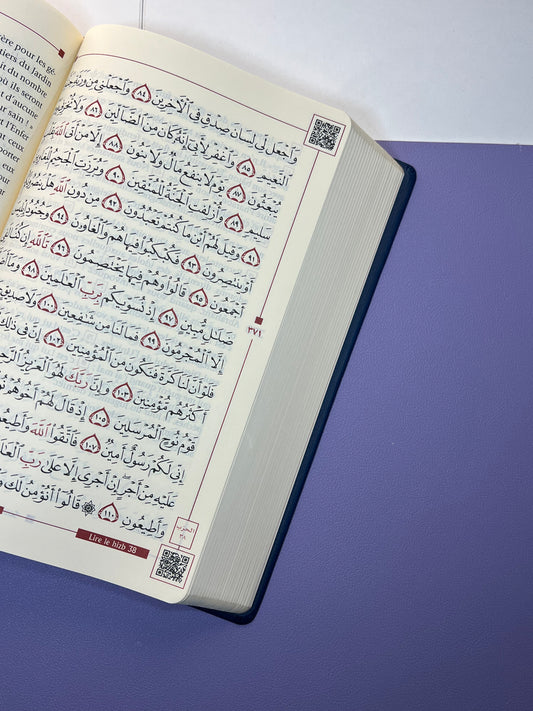 ère pour les gé-
tiers du Jardin
it du nombre
où ils seront
t d'aucune
r sain ! "
et l'Enfer
ont ceux
porter
eux
pour
وَٱجْعَل لِّى لِسَانَ صِدْقٍ فِى ٱلْءَاخِرِينَ ٨٤ وَٱجْعَلْنِى مِن
ٱلنَّعِيمِ ٨٥ وَٱغْفِرْ لِأَبِىٓ إِنَّهُۥ كَانَ مِنَ ٱلضَّآلِّينَ ٨٦ وَلَا
يُبْعَثُونَ ٨٧ يَوْمَ لَا يَنفَعُ مَالٌ وَلَا بَنُونَ ٨٨ إِلَّا مَنْ أَتَى ٱللَّهَ
سَلِيمٍ ٨٩ وَأُزْلِفَتِ ٱلْجَنَّةُ لِلْمُتَّقِينَ ٩٠ وَبُرِّزَتِ ٱلْجَحِيمُ
٩١ وَقِيلَ لَهُمْ أَيْنَ مَا كُنتُمْ تَعْبُدُونَ ٩٢ مِن دُونِ ٱللَّهِ هَلْ
أَوْ يَنتَصِرُونَ ٩٣ فَكُبْكِبُوا۟ فِيهَا هُمْ وَٱلْغَاوُۥنَ ٩٤ وَجُنُودُ
أَجْمَعُونَ ٩٥ قَالُوا۟ وَهُمْ فِيهَا يَخْتَصِمُونَ ٩٦ تَٱللَّهِ إِن كُنَّا
ضَلَٰلٍ مُّبِينٍ ٩٧ إِذْ نُسَوِّيكُم بِرَبِّ ٱلْعَٰلَمِينَ ٩٨ وَمَآ
إِلَّا ٱلْمُجْرِمُونَ ٩٩ فَمَا لَنَا مِن شَٰفِعِينَ ١٠٠ وَلَا صَدِيقٍ
فَلَوْ أَنَّ لَنَا كَرَّةً فَنَكُونَ مِنَ ٱلْمُؤْمِنِينَ ١٠٢ إِنَّ فِى ذَٰلِكَ
أَكْثَرُهُم مُّؤْمِنِينَ ١٠٣ وَإِنَّ رَبَّكَ لَهُوَ ٱلْعَزِيزُ
قَوْمُ نُوحٍ ٱلْمُرْسَلِينَ ١٠٥ إِذْ قَالَ لَهُمْ أَخُوهُمْ
إِنِّى لَكُمْ رَسُولٌ أَمِينٌ ١٠٧ فَٱتَّقُوا۟ ٱللَّهَ وَأَطِيعُونِ
عَلَيْهِ مِنْ أَجْرٍ إِنْ أَجْرِىَ إِلَّا عَلَىٰ رَبِّ
وَأَطِيعُونِ ١١٠ ۞ قَالُوٓا۟ أَنُؤْمِنُ لَكَ
٣٧١
الحزب
٣٨
Lire le hizb 38